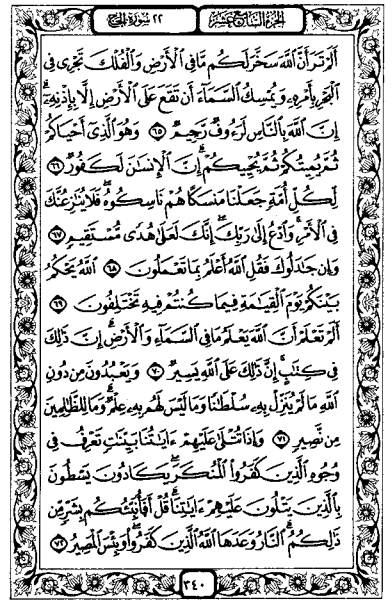 الجزء السابع عشر ٢٢ سورة الحج
أَلَمْ تَرَ أَنَّ ٱللَّهَ سَخَّرَ لَكُم مَّا فِى ٱلْأَرْضِ وَٱلْفُلْكَ تَجْرِى فِى
ٱلْبَحْرِ بِأَمْرِهِۦ وَيُمْسِكُ ٱلسَّمَآءَ أَن تَقَعَ عَلَى ٱلْأَرْضِ إِلَّا بِإِذْنِهِۦٓ
إِنَّ ٱللَّهَ بِٱلنَّاسِ لَرَءُوفٌ رَّحِيمٌ ٦٥ وَهُوَ ٱلَّذِىٓ أَحْيَاكُمْ
ثُمَّ يُمِيتُكُمْ ثُمَّ يُحْيِيكُمْ إِنَّ ٱلْإِنسَـٰنَ لَكَفُورٌ ٦٦
لِكُلِّ أُمَّةٍ جَعَلْنَا مَنسَكًا هُمْ نَاسِكُوهُ فَلَا يُنَـٰزِعُنَّكَ
فِى ٱلْأَمْرِ وَٱدْعُ إِلَىٰ رَبِّكَ إِنَّكَ لَعَلَىٰ هُدًى مُّسْتَقِيمٍ ٦٧
وَإِن جَـٰدَلُوكَ فَقُلِ ٱللَّهُ أَعْلَمُ بِمَا تَعْمَلُونَ ٦٨ ٱللَّهُ يَحْكُمُ
بَيْنَكُمْ يَوْمَ ٱلْقِيَـٰمَةِ فِيمَا كُنتُمْ فِيهِ تَخْتَلِفُونَ ٦٩
أَلَمْ تَعْلَمْ أَنَّ ٱللَّهَ يَعْلَمُ مَا فِى ٱلسَّمَآءِ وَٱلْأَرْضِ إِنَّ ذَٰلِكَ
فِى كِتَـٰبٍ إِنَّ ذَٰلِكَ عَلَى ٱللَّهِ يَسِيرٌ ٧٠ وَيَعْبُدُونَ مِن دُونِ
ٱللَّهِ مَا لَمْ يُنَزِّلْ بِهِۦ سُلْطَـٰنًا وَمَا لَيْسَ لَهُم بِهِۦ عِلْمٌ وَمَا لِلظَّـٰلِمِينَ
مِن نَّصِيرٍ ٧١ وَإِذَا تُتْلَىٰ عَلَيْهِمْ ءَايَـٰتُنَا بَيِّنَـٰتٍ تَعْرِفُ فِى
وُجُوهِ ٱلَّذِينَ كَفَرُوا۟ ٱلْمُنكَرَ يَكَادُونَ يَسْطُونَ
بِٱلَّذِينَ يَتْلُونَ عَلَيْهِمْ ءَايَـٰتِنَا قُلْ أَفَأُنَبِّئُكُم بِشَرٍّ مِّن
ذَٰلِكُمُ ٱلنَّارُ وَعَدَهَا ٱللَّهُ ٱلَّذِينَ كَفَرُوا۟ وَبِئْسَ ٱلْمَصِيرُ ٧٢
٣٤٠